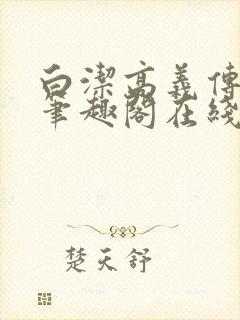 白潔高義傳
筆趣閣在綫
楚天舒